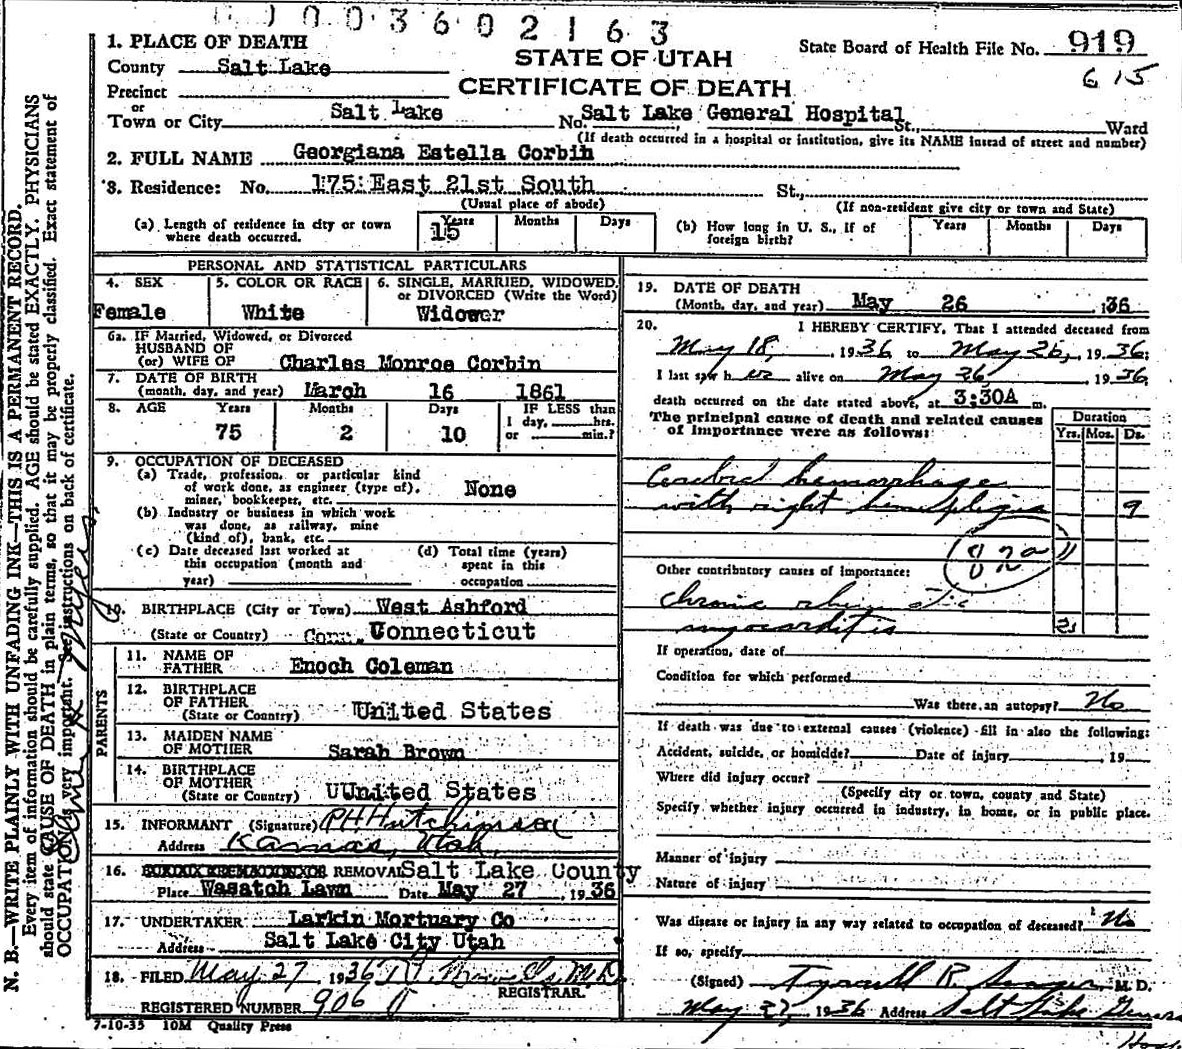 003602163
1. PLACE OF DEATH
County Salt Lake
STATE OF UTAH
CERTIFICATE OF DEATH
State Board of Health File No. 919
615
Precinct
or
Town or City Salt Lake No. Salt Lake General Hospital St., Ward
(If death occurred in a hospital or institution, give its NAME instead of street and number)
2. FULL NAME Georgiana Estella Corbin
3. Residence: No. 175 East 21st South St.,
(Usual place of abode)
(If non-resident give city or town and State)
(a) Length of residence in city or town where death occurred. Years 15 Months Days
(b) How long in U. S., if of foreign birth? Years Months Days
PERSONAL AND STATISTICAL PARTICULARS
4. SEX
Female
5. COLOR OR RACE
White
6. SINGLE, MARRIED, WIDOWED, or DIVORCED (Write the Word)
Widower
6a. IF Married, Widowed, or Divorced
HUSBAND OF
(or) WIFE OF Charles Monroe Corbin
7. DATE OF BIRTH
(month, day, and year) March 16 1861
8. AGE Years Months Days IF LESS than
1 day, hrs.
or min.?
75 2 10
9. OCCUPATION OF DECEASED
(a) Trade, profession, or particular kind
of work done, as engineer (type of),
miner, bookkeeper, etc. None
(b) Industry or business in which work
was done, as railway, mine
(kind of), bank, etc.
(c) Date deceased last worked at
this occupation (month and
year)
(d) Total time (years)
spent in this
occupation
10. BIRTHPLACE (City or Town) West Ashford
(State or Country) Conn. Connecticut
PARENTS
11. NAME OF
FATHER Enoch Coleman
12. BIRTHPLACE
OF FATHER
(State or Country) United States
13. MAIDEN NAME
OF MOTHER Sarah Brown
14. BIRTHPLACE
OF MOTHER
(State or Country) UUnited States
15. INFORMANT (Signature) P H Hutchinson
Address Kamas, Utah
16. REMOVAL Salt Lake County
Place Wasatch Lawn Date May 27, 1936
17. UNDERTAKER Larkin Mortuary Co
Address Salt Lake City Utah
18. FILED May 27, 1936
REGISTRAR.
REGISTERED NUMBER 906
7-10-35 10M Quality Press
19. DATE OF DEATH
(Month, day, and year) May 26 1936
20. I HEREBY CERTIFY, That I attended deceased from
May 18, 1936 to May 26, 1936;
I last saw her alive on May 26, 1936,
death occurred on the date stated above, at 3:30A m.
The principal cause of death and related causes
of importance were as follows:
Duration
Yrs. Mos. Ds.
Cerebral hemorrhage
with right hemiplegia 9
82a
Other contributory causes of importance:
chronic
myocarditis
If operation, date of
Condition for which performed
Was there an autopsy? No
If death was due to external causes (violence) fill in also the following:
Accident, suicide, or homicide? Date of injury 19
Where did injury occur?
(Specify city or town, county and State)
Specify whether injury occurred in industry, in home, or in public place.
Manner of injury
Nature of injury
Was disease or injury in any way related to occupation of deceased? No
If so, specify
(Signed) M. D.
May 27, 1936 Address Salt Lake General
N. B.—WRITE PLAINLY WITH UNFADING INK—THIS IS A PERMANENT RECORD.
Every item of information should be carefully supplied. AGE should be stated EXACTLY. PHYSICIANS
should state CAUSE OF DEATH in plain terms, so that it may be properly classified. Exact statement of
OCCUPATION is very important. See instructions on back of certificate.